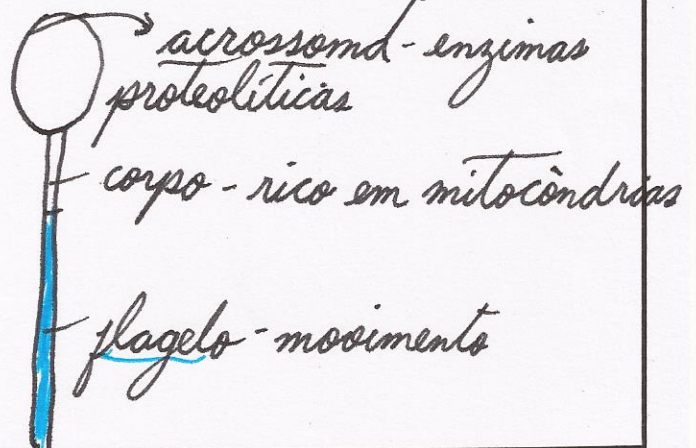 acrossoma - enzimas
proteolíticas
corpo - rico em mitocôndrias
flagelo - movimento